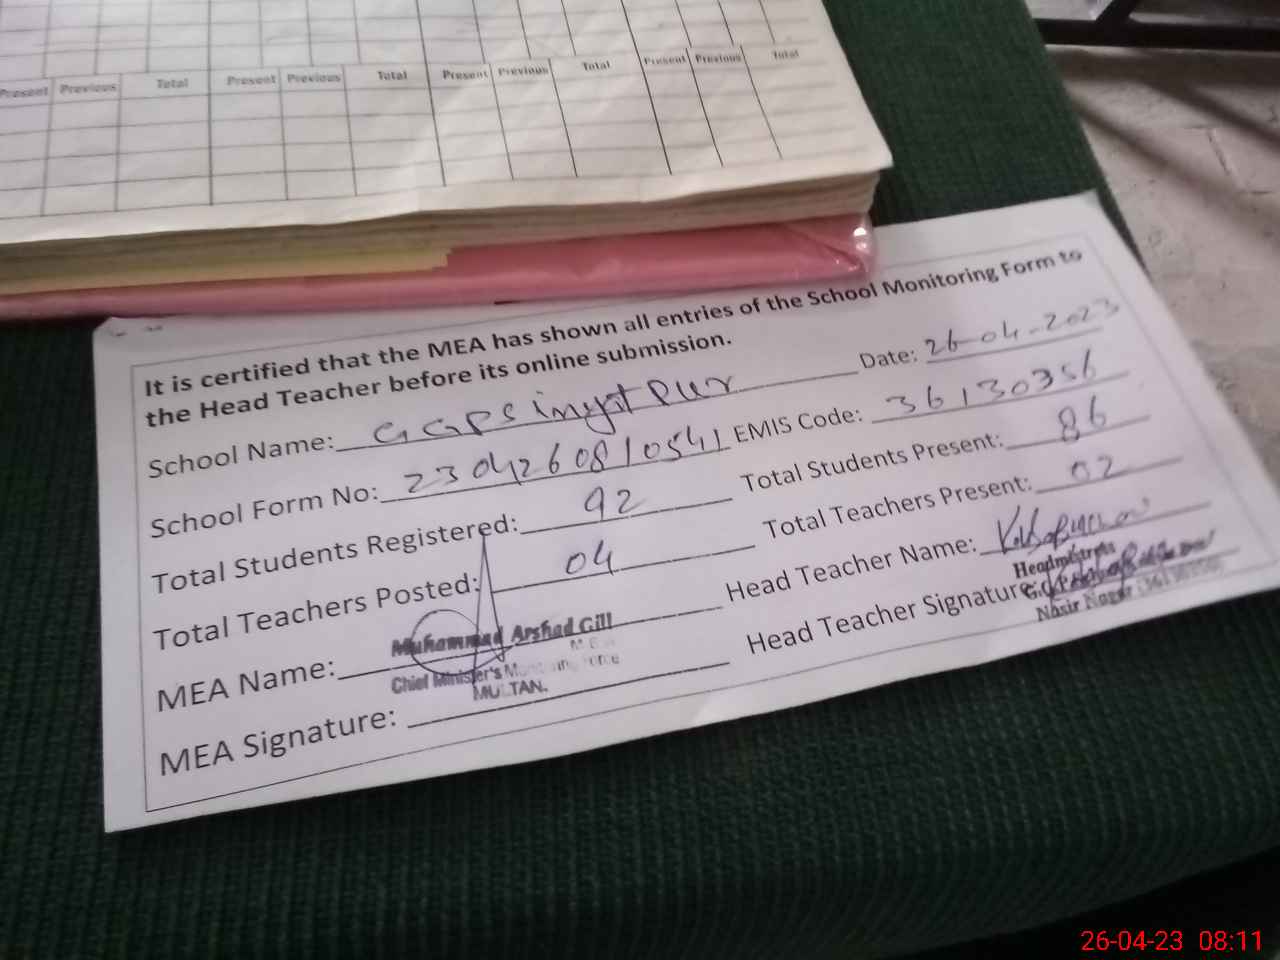 Present Previous Total Present Previous Total Present Previous Total Present Previous Total
It is certified that the MEA has shown all entries of the School Monitoring Form to
the Head Teacher before its online submission.
Date: 26-04-2023
School Name: GGPS
EMIS Code: 36130356
School Form No: 2304260810541
Total Students Present: 86
Total Students Registered: 92
Total Teachers Present: 02
Total Teachers Posted: 04
Head Teacher Name:
MEA Name: Muhammad Arshad Gill
M.E.A
Chief Minister's Monitoring Force
MULTAN.
Head Teacher Signature:
Headmistress
MEA Signature:
26-04-23 08:11